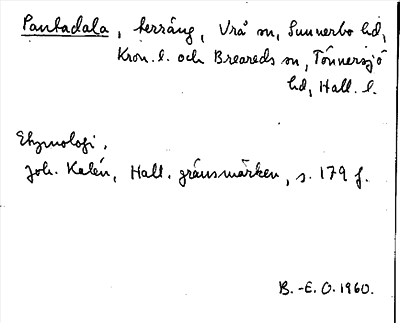 Pantadala, terräng, Vrå sn, Sunnerbo hd,
Kron. l. och Breareds sn, Tönnersjö
hd, Hall. l.
Etymologi.
Joh. Kalén, Hall. gränsmärken, s. 179 f.
B.-E. O. 1960.